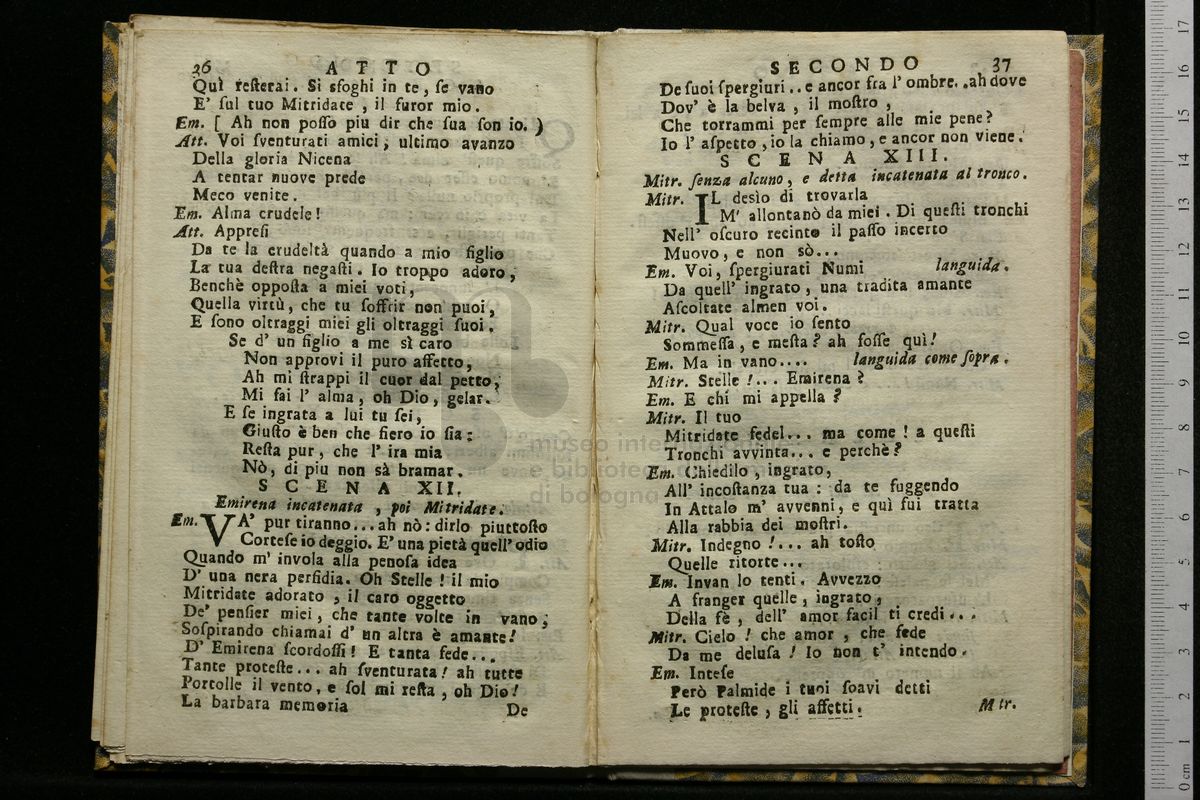 36 ATTO
Quì resterai. Si sfoghi in te, se vano
E' sul tuo Mitridate, il furor mio.
Em. [ Ah non posso piu dir che sua son io. )
Att. Voi sventurati amici, ultimo avanzo
Della gloria Nicena
A tentar nuove prede
Meco venite.
Em. Alma crudele!
Att. Appresi
Da te la crudeltà quando a mio figlio
La tua destra negasti. Io troppo adoro,
Benchè opposta a miei voti,
Quella virtù, che tu soffrir non puoi,
E sono oltraggi miei gli oltraggi suoi.
Se d' un figlio a me sì caro
Non approvi il puro affetto,
Ah mi strappi il cuor dal petto,
Mi fai l' alma, oh Dio, gelar.
E se ingrata a lui tu sei,
Giusto è ben che fiero io sia:
Resta pur, che l' ira mia
Nò, di piu non sà bramar.
SCENA XII.
Emirena incatenata, poi Mitridate.
Em. VA' pur tiranno...ah nò: dirlo piuttosto
Cortese io deggio. E' una pietà quell' odio
Quando m' invola alla penosa idea
D' una nera perfidia. Oh Stelle! il mio
Mitridate adorato, il caro oggetto
De' pensier miei, che tante volte in vano,
Sospirando chiamai d' un altra è amante!
D' Emirena scordossi! E tanta fede...
Tante proteste... ah sventurata! ah tutte
Portolle il vento, e sol mi resta, oh Dio!
La barbara memoria
De
SECONDO 37
De suoi spergiuri..e ancor fra l' ombre..ah dove
Dov' è la belva, il mostro,
Che torrammi per sempre alle mie pene?
Io l' aspetto, io la chiamo, e ancor non viene.
SCENA XIII.
Mitr. senza alcuno, e detta incatenata al tronco.
Mitr. IL desìo di trovarla
M' allontanò da miei. Di questi tronchi
Nell' oscuro recinto il passo incerto
Muovo, e non sò...
Em. Voi, spergiurati Numi languida.
Da quell' ingrato, una tradita amante
Ascoltate almen voi.
Mitr. Qual voce io sento
Sommessa, e mesta? ah fosse quì!
Em. Ma in vano.... languida come sopra.
Mitr. Stelle!... Emirena?
Em. E chi mi appella?
Mitr. Il tuo
Mitridate fedel... ma come! a questi
Tronchi avvinta... e perchè?
Em. Chiedilo, ingrato,
All' incostanza tua: da te fuggendo
In Attalo m' avvenni, e quì fui tratta
Alla rabbia dei mostri.
Mitr. Indegno!... ah tosto
Quelle ritorte...
Em. Invan lo tenti. Avvezzo
A franger quelle, ingrato,
Della fè, dell' amor facil ti credi...
Mitr. Cielo! che amor, che fede
Da me delusa! Io non t' intendo.
Em. Intese
Però Palmide i tuoi soavi detti
Le proteste, gli affetti.
Mitr.
museo inter
e bibliotec
di bologna
17
16
15
14
13
12
11
10
9
8
7
6
5
4
3
2
1
0 cm